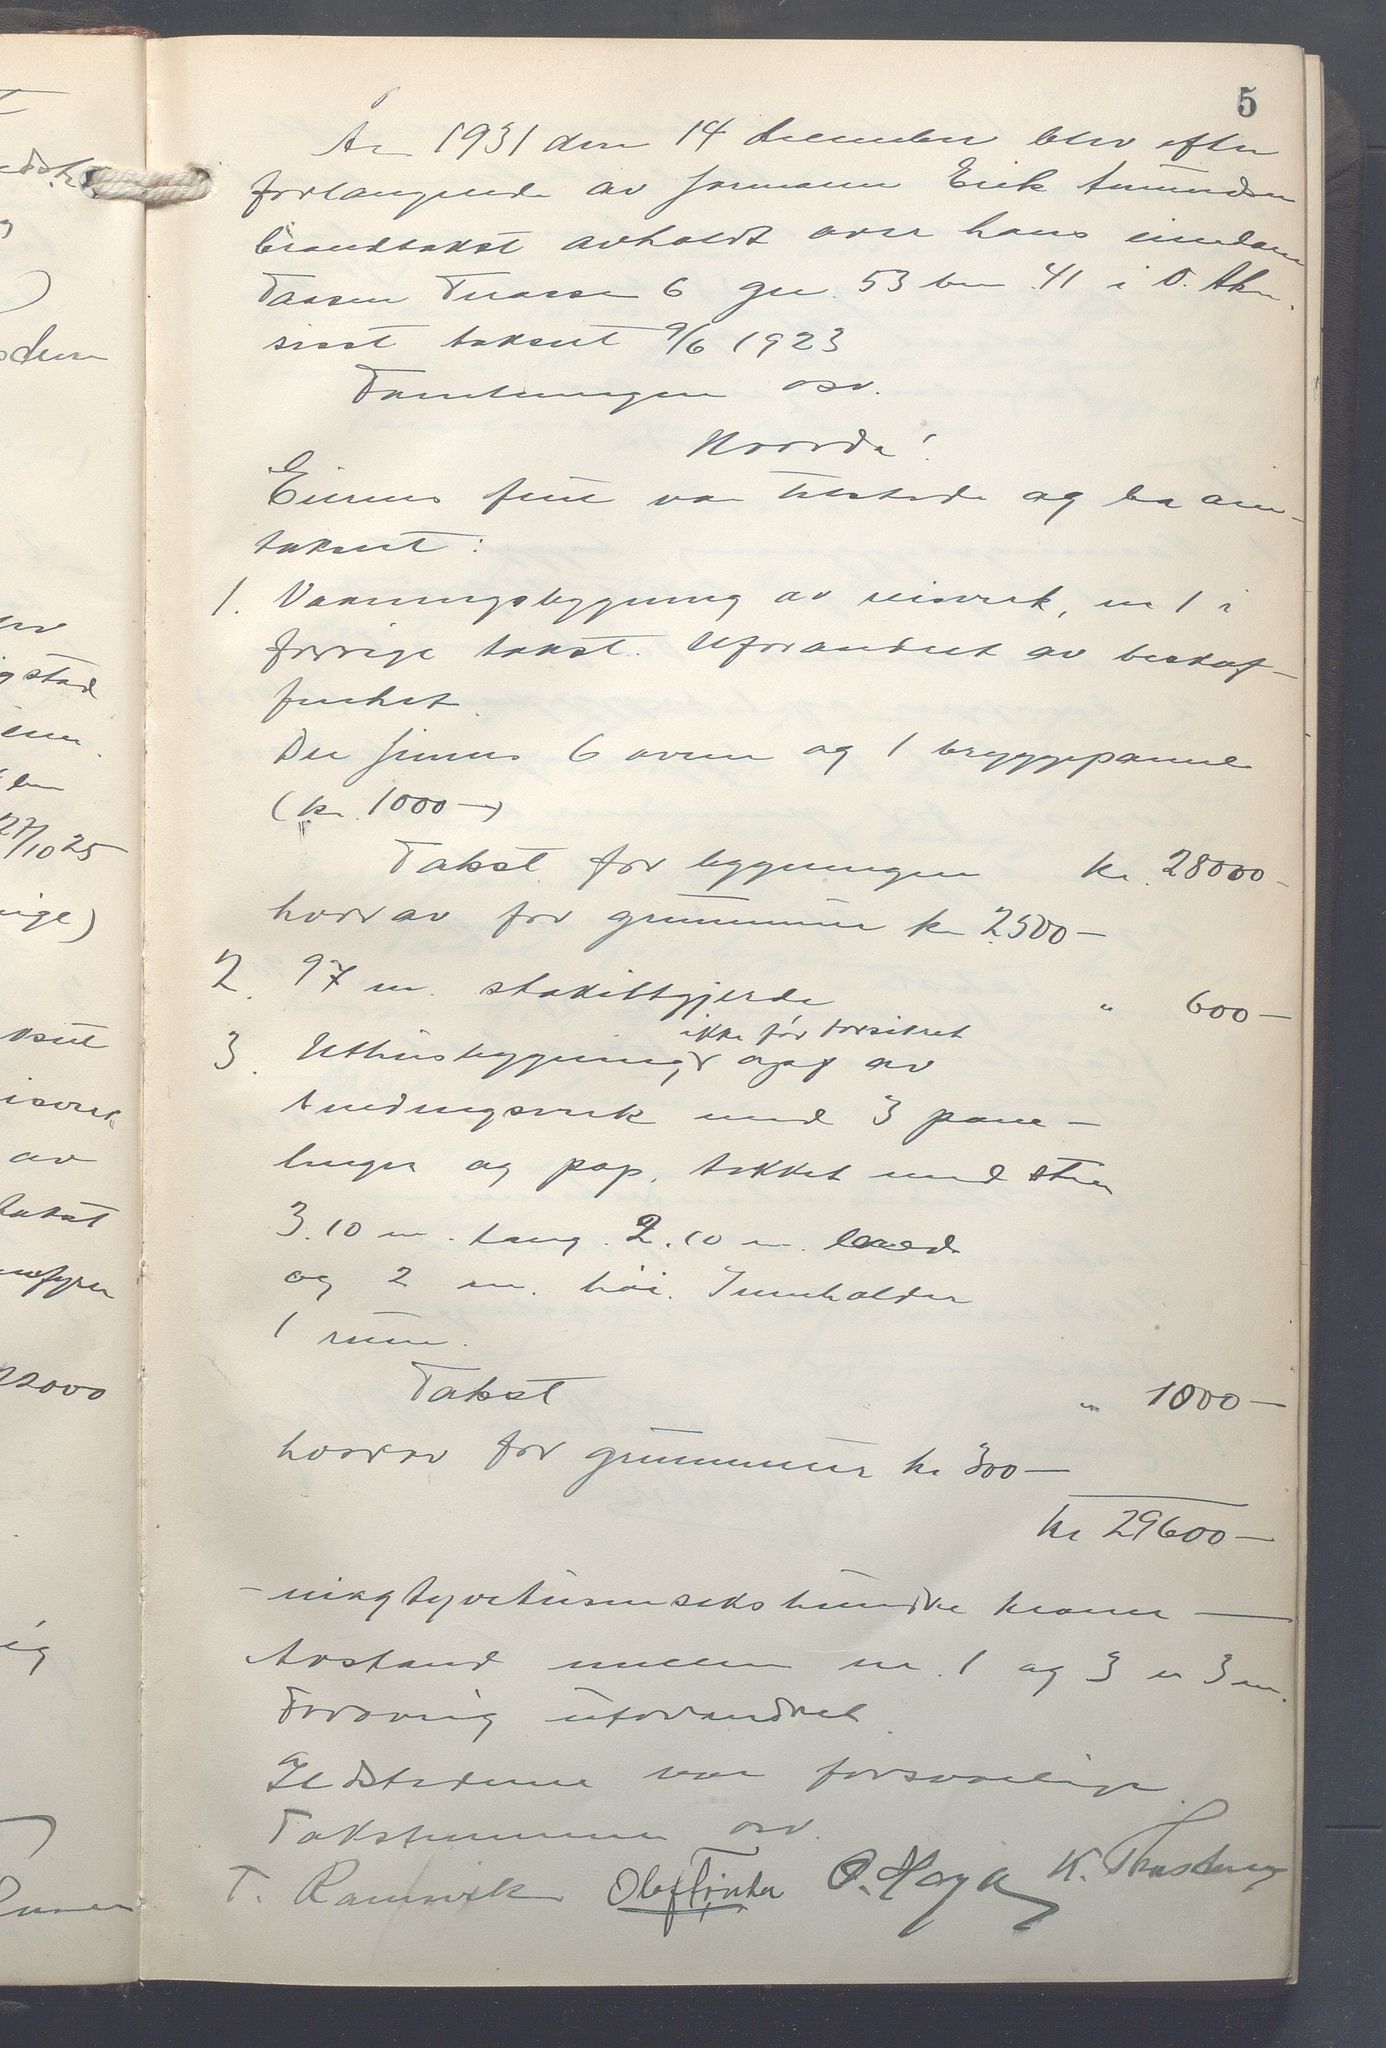 5
År 1931 den 14 desember blev efter
forlangende av formann Erik Amundsen
brandtakst avholdt over hans eiendom
Taasen Terasse 6 gnr. 53 bnr. 41 i V. Aker.
sisst taksert 9/6 1923
Forretningen osv.
Hvorda!
Eierens frue var tilstede og ba om
taksert:
1. Vaaningsbygning av reisverk, nr 1 i
forrige takst. Uforandret av beskaf-
fenhet.
Der finnes 6 ovner og 1 bryggepanne
(kr. 1000 —)
Takst for bygningen kr. 28000 -
hvorav for grunnmur kr 2500 —
2. 97 m. stakittgjerde " 600 —
ikke før forsikret
3. Uthusbygning, av
bindingsverk med 3 pane-
linger og pap, tekket med sten
3.10 m. lang. 2.10 m. bred
og 2 m. høi. Inneholder
1 rum.
Takst " 1000 —
hvorav for grunnmur kr 300 —
kr 29600 —
- niogtyvetusenseкshundre kroner —
Avstand mellem nr. 1 og 3 er 3 m.
Forøvrig uforandret.
Ildstederne var forsvarlige.
Takstmennene osv.
T. Ramsvik Olaf O. Høya K.